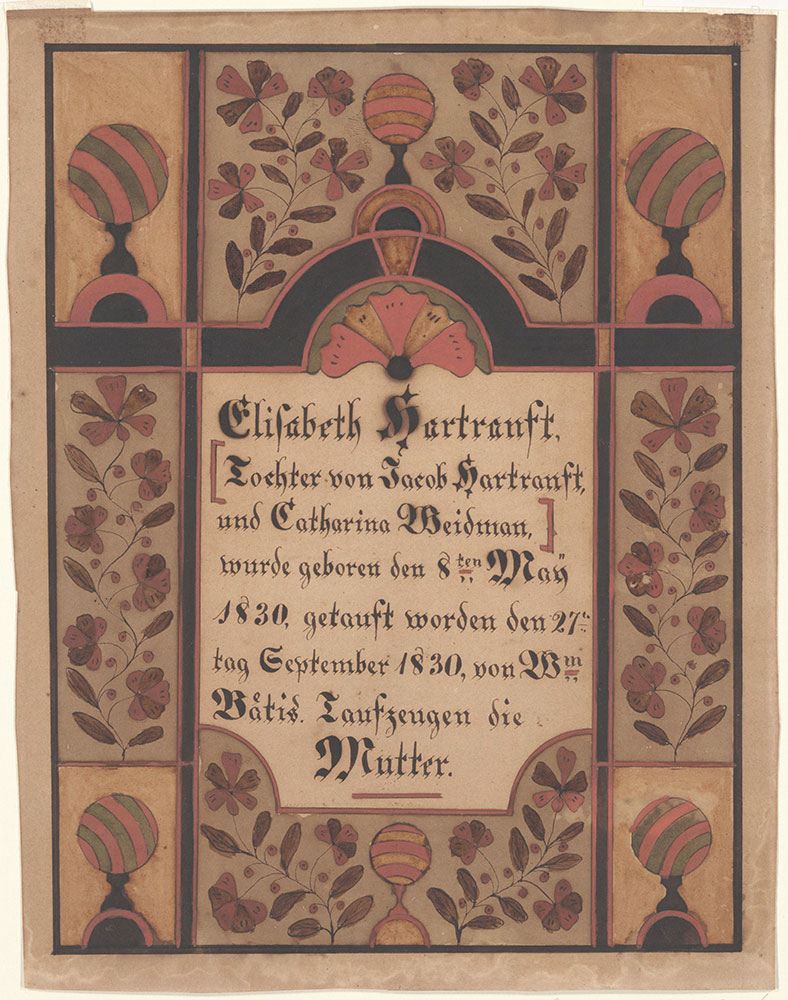 Elisabeth Hartranft,
[Tochter von Jacob Hartranft,
und Catharina Weidman,]
wurde geboren den 8ten Maÿ
1830, getauft worden den 27t
tag September 1830, von Wm
Båtis. Taufzeugen die
Mutter.